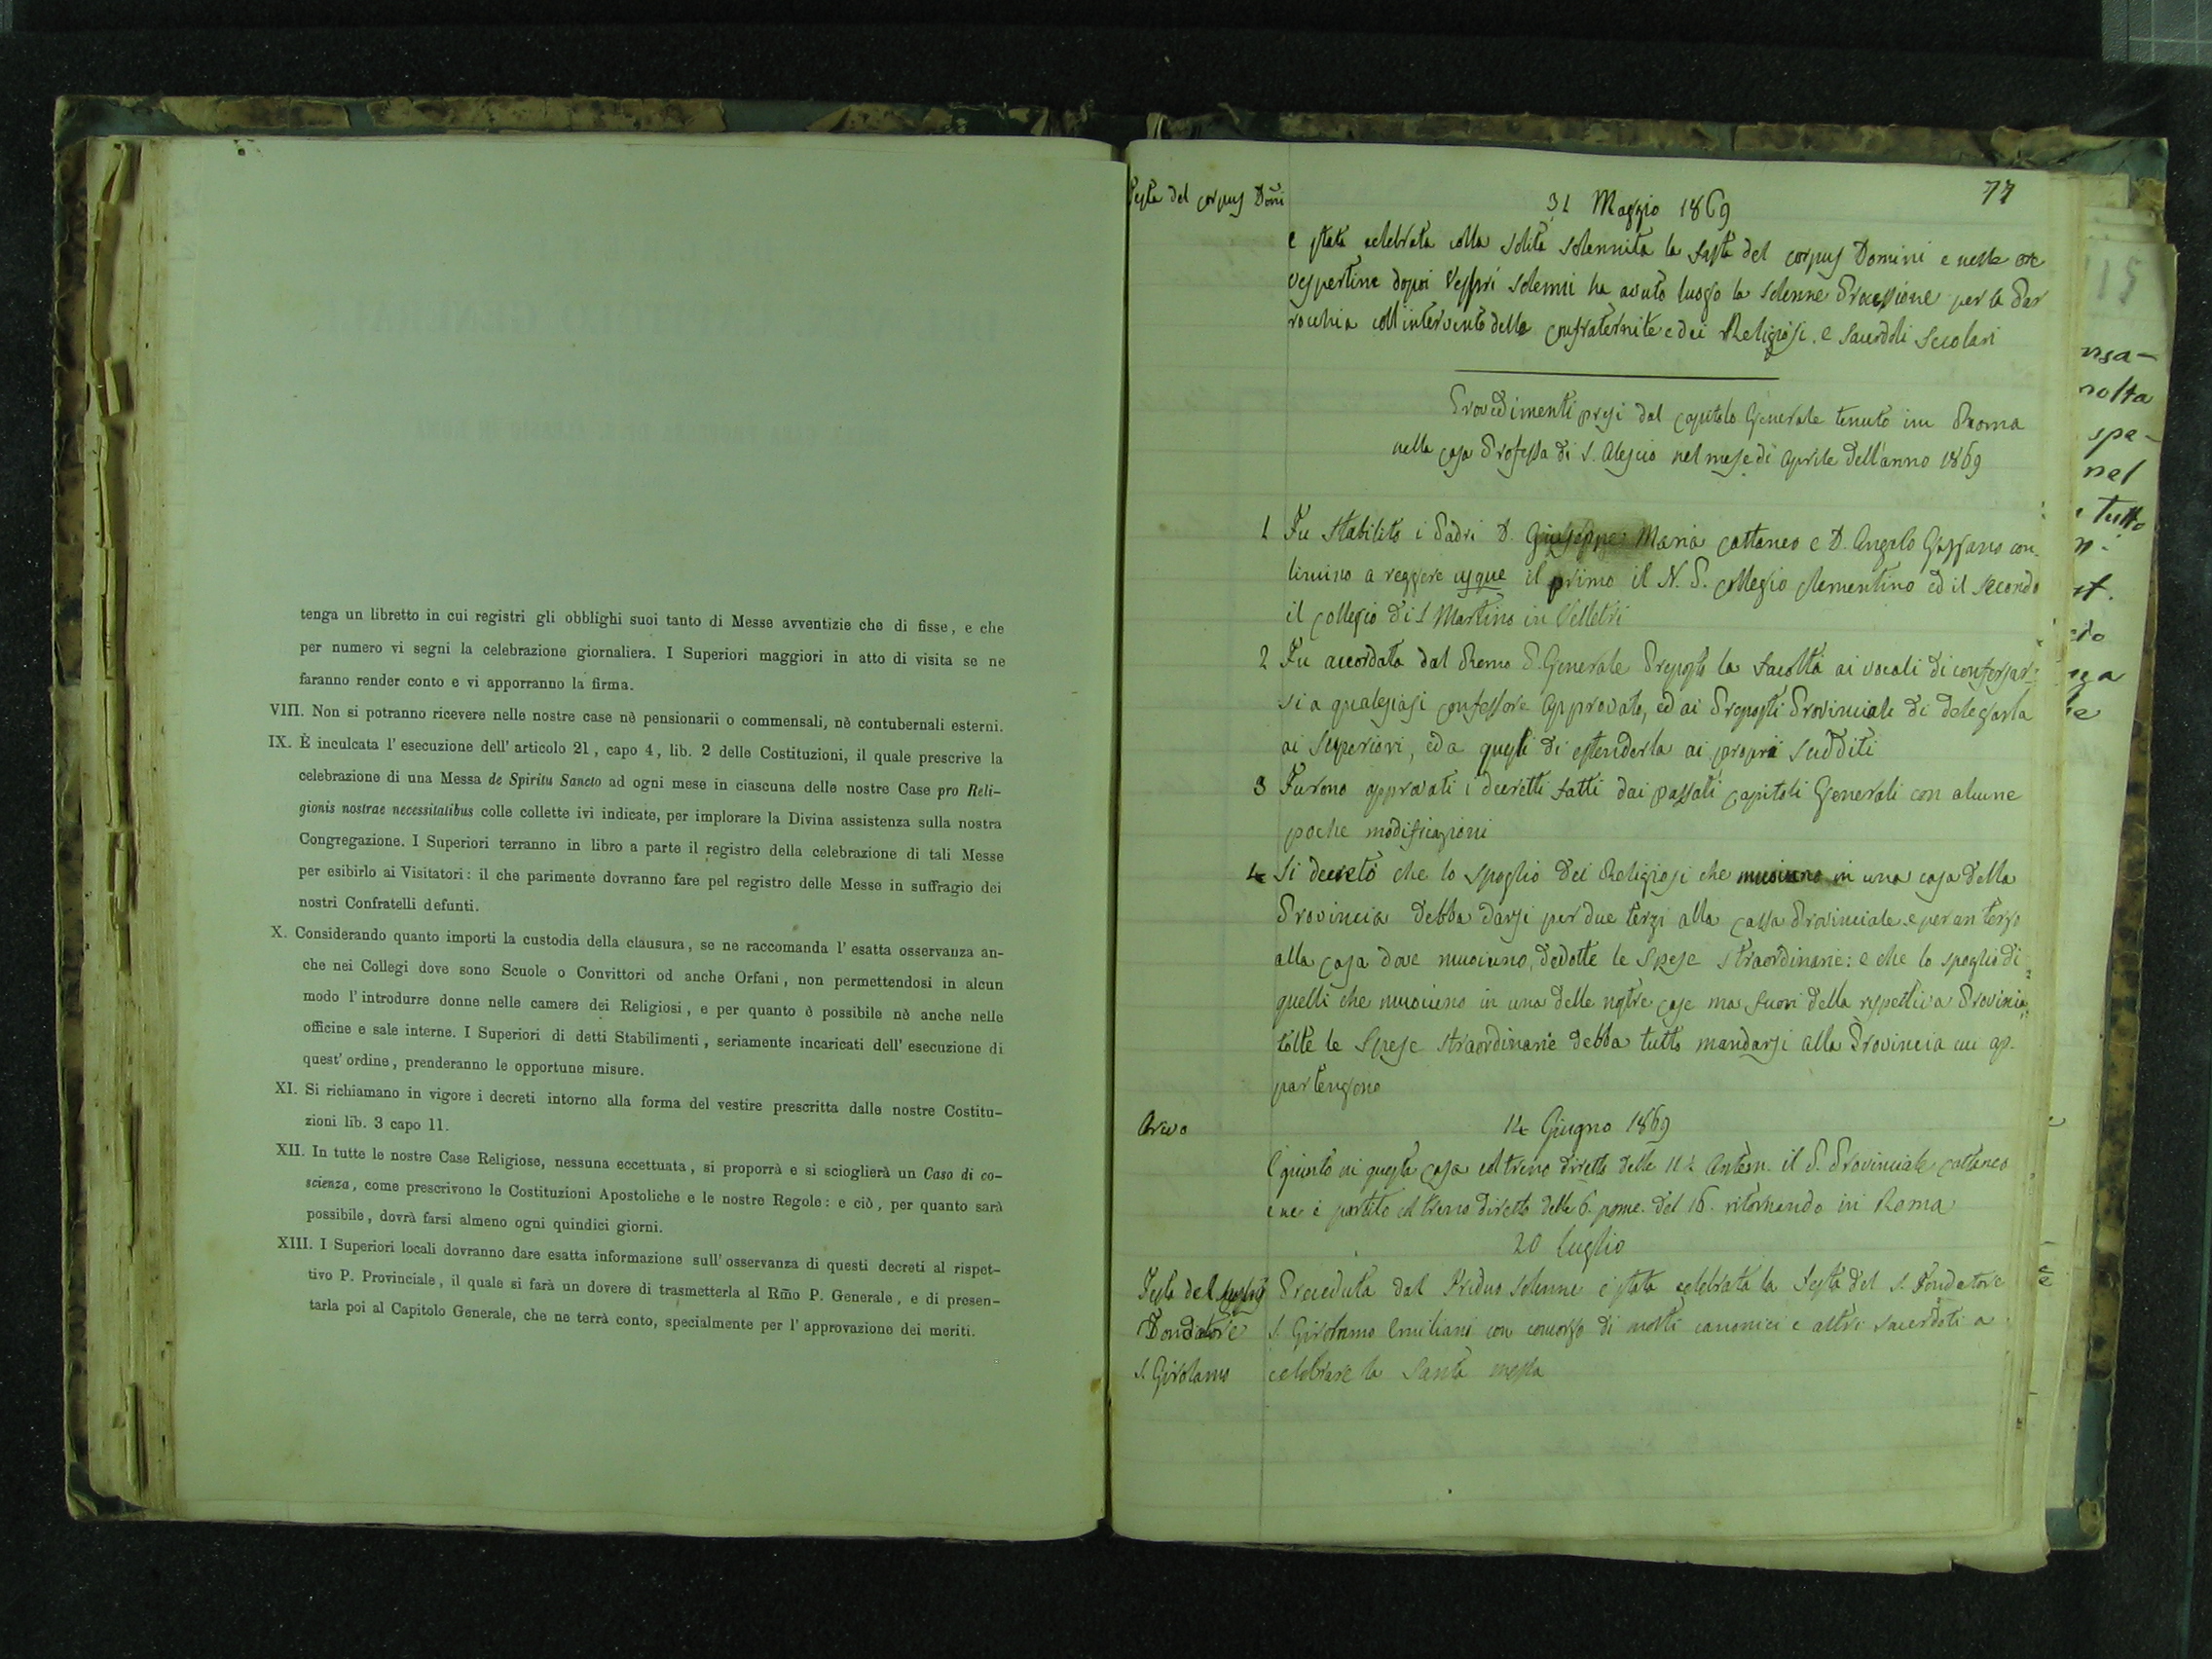 tenga un libretto in cui registri gli obblighi suoi tanto di Messe avventizie che di fisse, e che
per numero vi segni la celebrazione giornaliera. I Superiori maggiori in atto di visita se ne
faranno render conto e vi apporranno la firma.
VIII. Non si potranno ricevere nelle nostre case nè pensionarii o commensali, nè contubernali esterni.
IX. È inculcata l'esecuzione dell'articolo 21, capo 4, lib. 2 delle Costituzioni, il quale prescrive la
celebrazione di una Messa de Spiritu Sancto ad ogni mese in ciascuna delle nostre Case pro Reli-
gionis nostrae necessitatibus colle collette ivi indicate, per implorare la Divina assistenza sulla nostra
Congregazione. I Superiori terranno in libro a parte il registro della celebrazione di tali Messe
per esibirlo ai Visitatori: il che parimente dovranno fare pel registro delle Messe in suffragio dei
nostri Confratelli defunti.
X. Considerando quanto importi la custodia della clausura, se ne raccomanda l'esatta osservanza an-
che nei Collegi dove sono Scuole o Convittori od anche Orfani, non permettendosi in alcun
modo l'introdurre donne nelle camere dei Religiosi, e per quanto è possibile nè anche nelle
officine e sale interne. I Superiori di detti Stabilimenti, seriamente incaricati dell'esecuzione di
quest'ordine, prenderanno le opportune misure.
XI. Si richiamano in vigore i decreti intorno alla forma del vestire prescritta dalle nostre Costitu-
zioni lib. 3 capo 11.
XII. In tutte le nostre Case Religiose, nessuna eccettuata, si proporrà e si scioglierà un Caso di co-
scienza, come prescrivono le Costituzioni Apostoliche e le nostre Regole: e ciò, per quanto sarà
possibile, dovrà farsi almeno ogni quindici giorni.
XIII. I Superiori locali dovranno dare esatta informazione sull'osservanza di questi decreti al rispet-
tivo P. Provinciale, il quale si farà un dovere di trasmetterla al Rm̃o P. Generale, e di presen-
tarla poi al Capitolo Generale, che ne terrà conto, specialmente per l'approvazione dei meriti.
77
Festa del corpus Dom̃i
31 Maggio 1869
e stata celebrata colla solita solennita la festa del corpus Domini e nelle ore
vespertine dopoi Vespri solenni ha avuto luogo la solenne Processione per la Par
rocchia coll intervento delle confraternite e dei Religiosi, e sacerdoti secolari
Provedimenti presi dal capitolo Generale tenuto in Roma
nella casa Professa di S. Alescio nel mese di Aprile dell'anno 1869
1 Fu stabilito i Padri D. Giuseppe Maria Cattaneo e D. Angelo Gassano con-
tinuino a reggere usque il primo il N. P. collegio clementino ed il secondo
il collegio di S Martino in Velletri
2 Fu accordata dal Remo P. Generale Preposto la facoltà ai vocali di confessar=
si a qualsiasi confessore approvato, ed ai Preposti Provinciali di delegarla
ai superiori, ed a questi di estenderla ai proprii sudditi
3 Furono approvati i decretti fatti dai passati capitoli Generali con alcune
poche modificazioni
4 Si decretò che lo spoglio dei Religiosi che muoiono in una casa della
Provincia debba darsi per due terzi alla cassa Provinciale e per un terzo
alla casa dove muoiono, dedotte le spese straordinarie: e che lo spoglio di
quelli che muoiono in una delle nostre case ma fuori della rispettiva Provincia,
tolte le spese straordinarie debba tutto mandarsi alla Provincia cui ap-
partengono
Arivo
14 Giugno 1869
E giunto in questa casa col treno diretto delle 11 ½ antem. il P. Provinciale Cattaneo
e ne è partito col treno diretto delle 6. pome. del 16. ritornando in Roma
20 luglio
Festa del nostro
Fondatore
S. Girolamo
Preceduta dal triduo solenne è stata celebrata la Festa del S. Fondatore
S. Girolamo Emiliani con concorso di molti canonici e altri sacerdoti a
celebrare la Santa messa
15
nsa-
nolta
spe-
nel
tutto